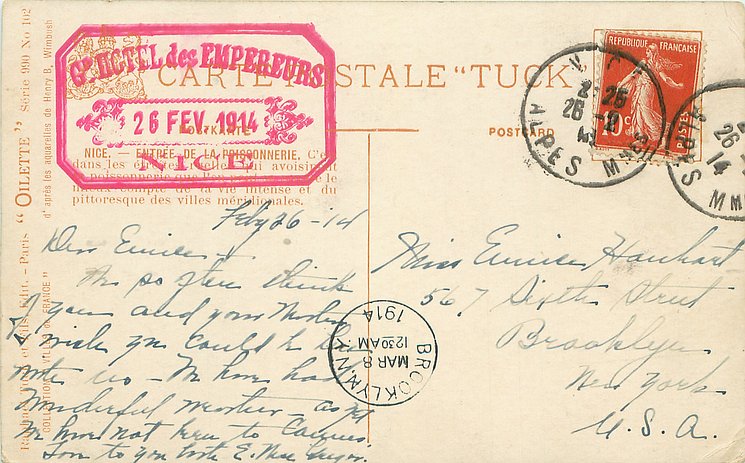 Raphael Tuck et Fils, Edit. - Paris "OILETTE" Série 990 No 102
COLLECTION VILLES de FRANCE" d'après les aquarelles de Henry B. Wimbush
Gd HOTEL des EMPEREURS
26 FEV. 1914
NICE
CARTE POSTALE "TUCK"
POSTKARTE
POSTCARD
NICE. — ENTRÉE DE LA POISSONNERIE. C'est
dans les
avoisinent
poissonnerie que l'on
le
mieux compte de la vie intense et du
pittoresque des villes méridionales.
REPUBLIQUE FRANÇAISE
POSTES
10 c
NICE
26 - 2
14
ALPES Mmes
26
14
ALPES Mmes
Feby 26 - 14
Dear Eunice -
We so often think
of you and your Mother
& wish you could be
with us - We have had
wonderful weather - as yet
we have not been to Cannes
Love to you both E.
Miss Eunice Hanhart
567 Sixth Street
Brooklyn
New York
U.S.A.
BROOKLYN, N.Y.
MAR 8
12 30 AM
1914